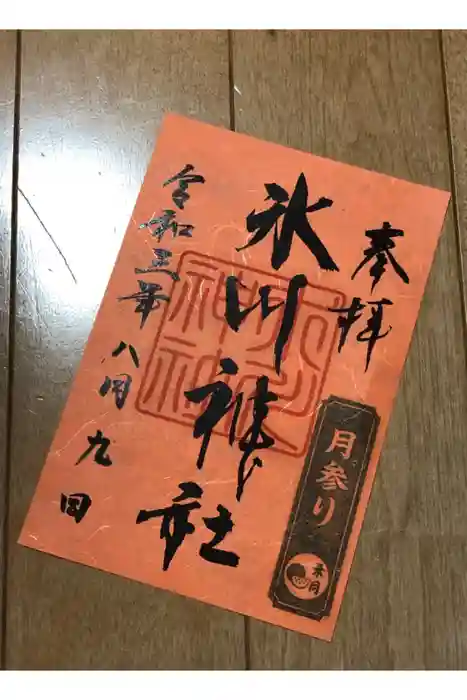 奉拝
月参り
葉月
氷川神社
氷川神社
令和三年八月九日